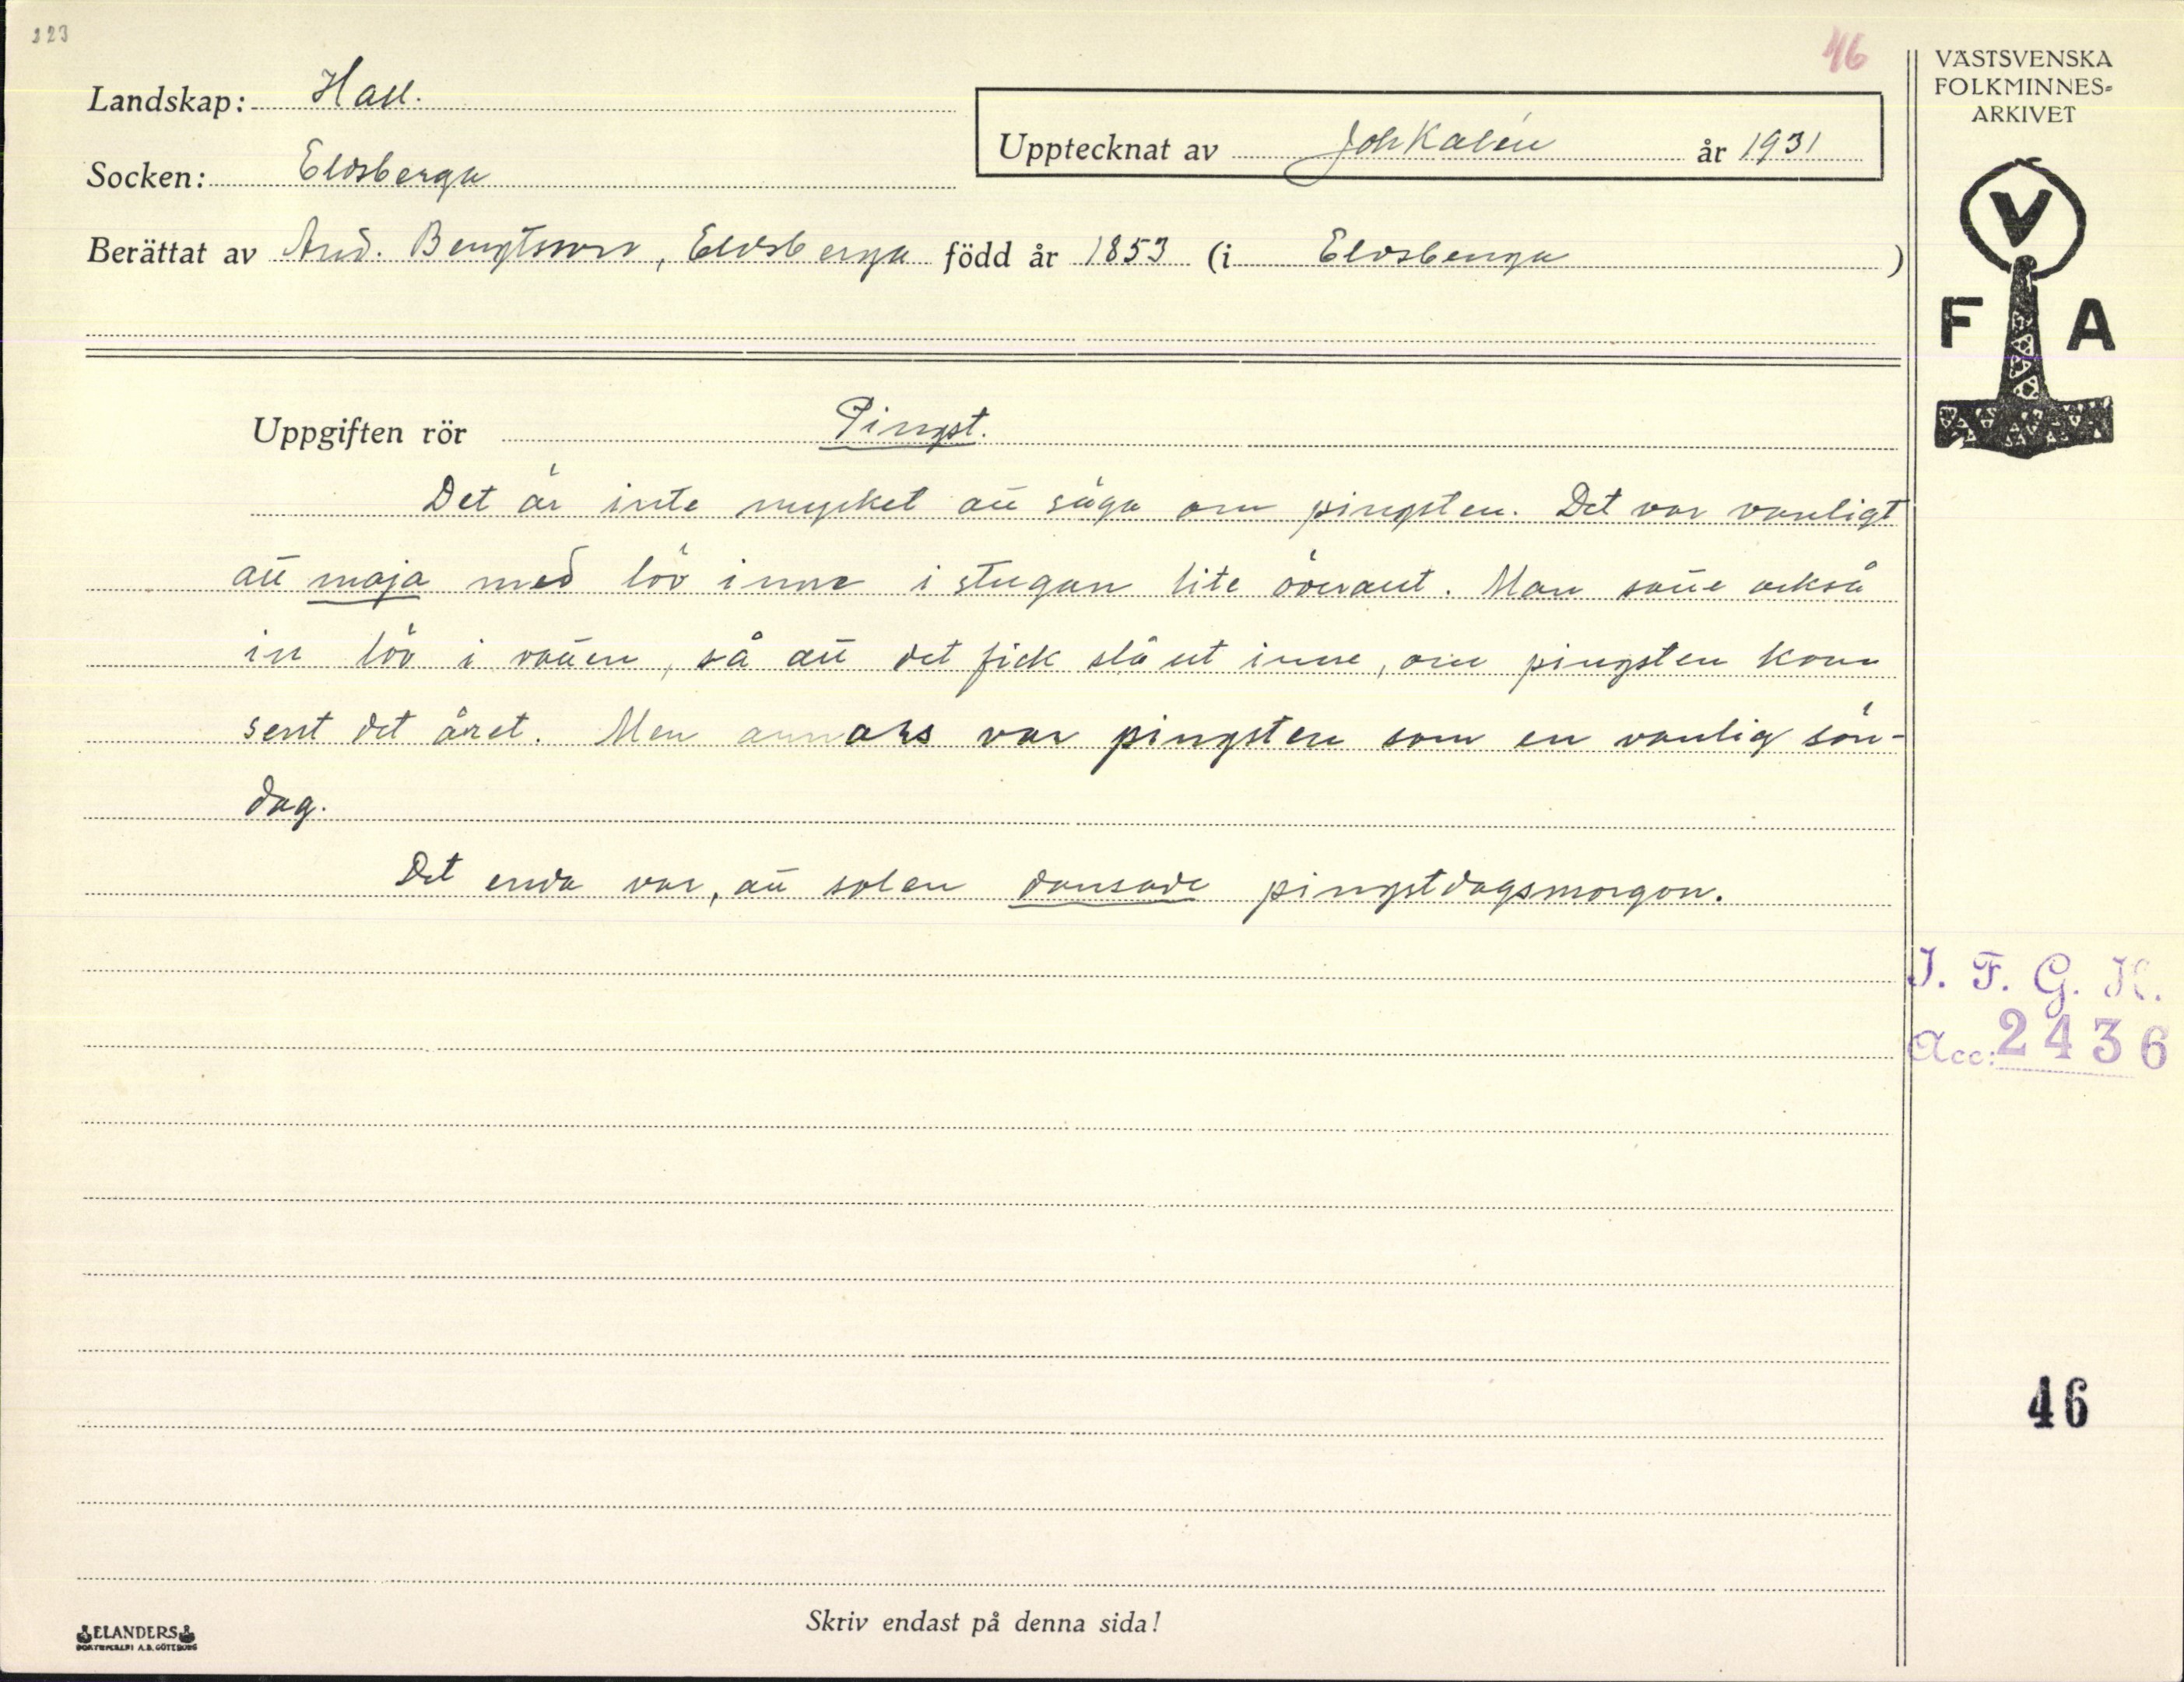 123
46
VÄSTSVENSKA
FOLKMINNES=
ARKIVET
Landskap: Hall.
Upptecknat av Joh Kalén år 1931
Socken: Eldsberga
Berättat av And. Bengtsson, Eldsberga född år 1853 (i Eldsberga )
V
F A
Uppgiften rör Pingst.
Det är inte mycket att säga om pingsten. Det var vanligt
att maja med löv inne i stugan lite överallt. Man satte också
in löv i vatten, så att det fick slå ut inne, om pingsten kom
sent det året. Men annars var pingsten som en vanlig sön-
dag.
Det enda var, att solen dansade pingstdagsmorgon.
I. F. G. H.
Acc: 2436
46
Skriv endast på denna sida!
ELANDERS
BOKTRYCKERI A.B. GÖTEBORG